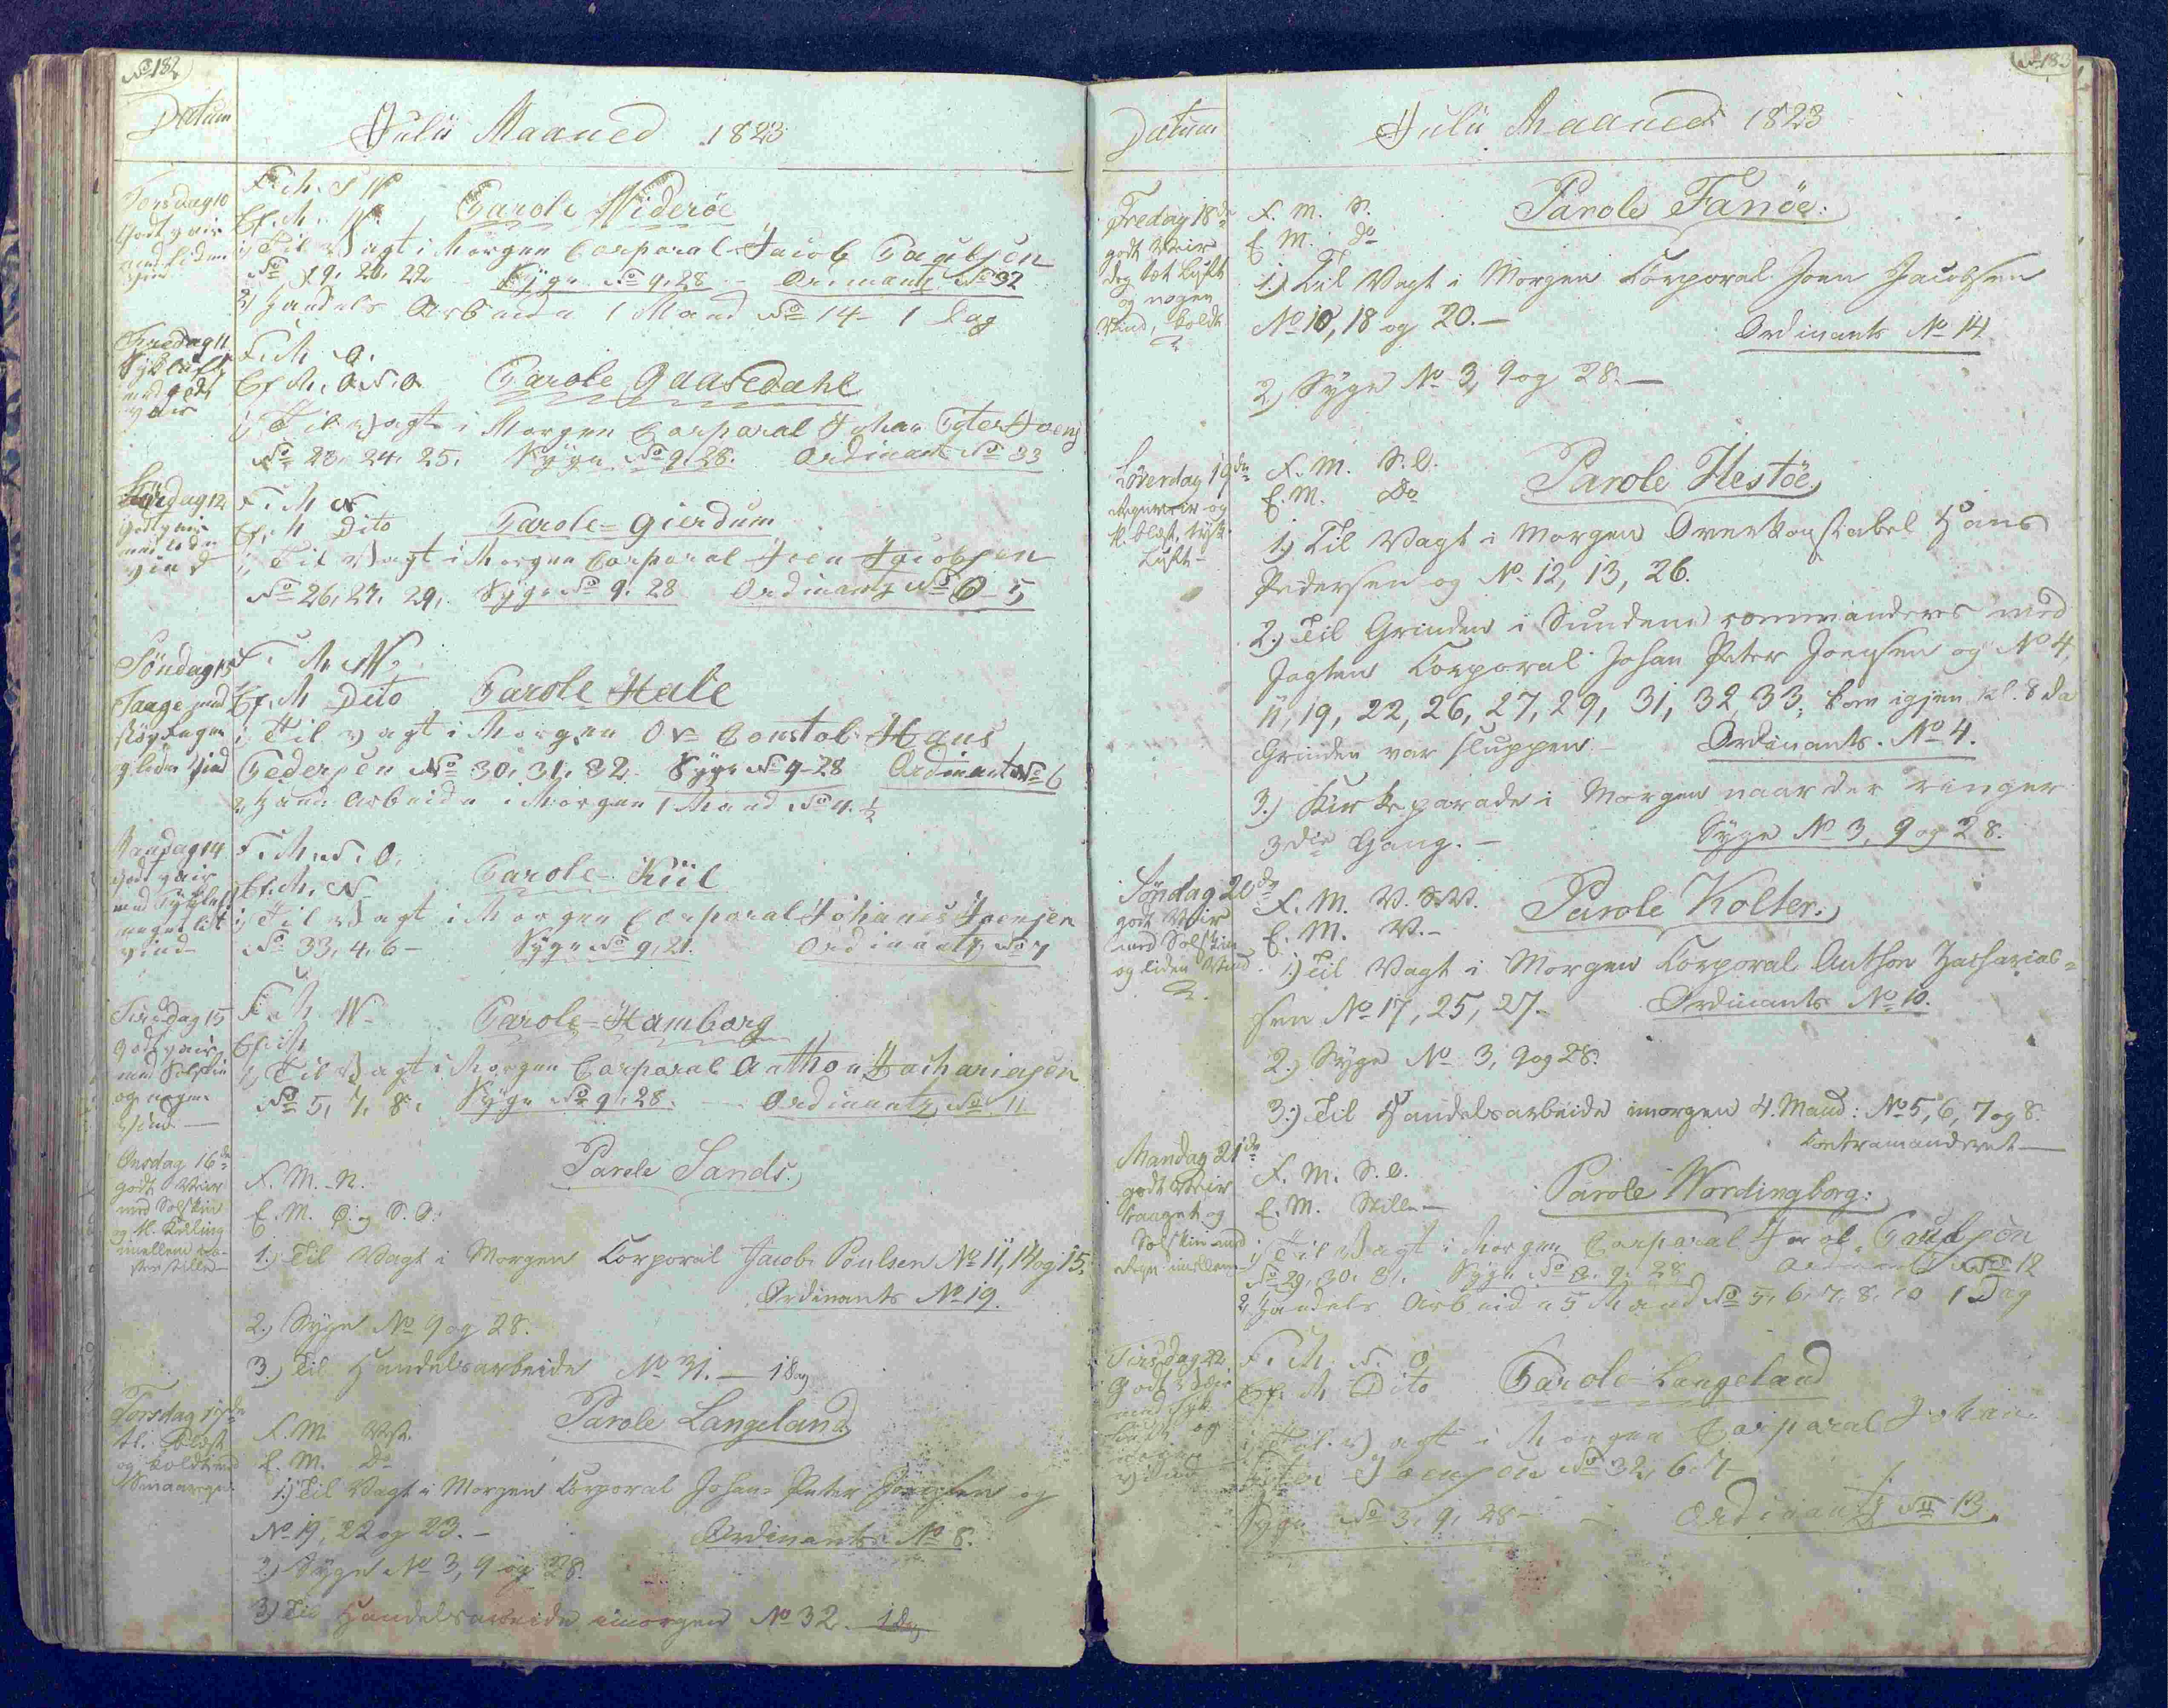 No 182
Datum
Julii Maaned 1823
Torsdag 10
godt vair
med liden
F. M. S W
Ef. M. W. Parole Widerøe
1, Til Vagt i Morgen Corporal Jacob Paulsen
No 19. 20. 22 Syge No 9. 28 - Ordinants No 32
2, Handels Arbeide 1 Mand No 14 - 1 Dag
Fredag 11
Tyk luft
med godt
vair
F. M. O.
Ef. M. O. N. O. Parole Gaasedahl
1, Til Vagt i Morgen Corporal Johan Peter Joens
No 23. 24. 25. Syge No 9. 28. Ordinants No 33
Lørdag 12
godt vair
med liden
vind
F. M N
Ef. M Dito Parole = Gierdum
1, Til Vagt i Morgen Corporal Joen Jacobsen
No 26. 27. 29. Syge No 9. 28 Ordinants No 5
Søndag 13
Taage med
støv Regn
og liden Vind
F. M N.
Ef. M Dito Parole Hale
1, Til vagt i Morgen Ov Constab. Hans
Pedersen No 30. 31. 32. Syge No 9 - 28 Ordinants No 6
2, Hand. Arbeide i Morgen 1 Mand No 4. ½
Mandag 14
godt vair
med Tyk luft
noget lit
vind
F. M. N. O.
Ef. M. N Parole - Kiil
1, Til Vagt i Morgen Corporal Johanes Joensen
No 33, 4. 6 - Syge No 9. 21. Ordinants No 7
Tirsdag 15
godt vair
med Solskin
og nogen
Vind
F. M W
Ef. M Parole = Hamborg
1, Til Vagt i Morgen Corporal Anthon Zachariasen
No 5. 7. 8. Syge No 9. 28. Ordinants No 11
Onsdag 16de
godt Veir
med Solskin
og kl. Kuling
imellem
F. M. N.
E. M. O. og S. O. Parole Sands.
1.) Til Vagt i Morgen Corporal Jacob Poulsen No 11, 14 og 15.
Ordinants No 19.
2.) Syge No 9 og 28.
3.) Til Handelsarbeide No 31. — 1 Dag
Torsdag 17de
kl. Blæst
og koldt med
Smaaregn
F. M. Vst.
E. M. Do Parole Langeland
1.) Til Vagt i Morgen Corporal Johan Peter Joensen og
No 19, 22 og 23. - Ordinants No 8.
2.) Syge No 3, 9 og 28.
3.) Til Handelsarbeide imorgen No 32. 1 Dag
No 183
Datum
Julii Maaned 1823
Fredag 18de
godt Veir
dog tæt Luft
og nogen
Vind, koldt
F. M. N.
E. M. do Parole Fanöe.
1.) Til Vagt i Morgen Corporal Joen Jacobsen
No 10, 18 og 20. — Ordinants No 14
2.) Syge No 3, 9 og 28. —
Löverdag 19de
Regnveir og
kl. blæst, tyk
Luft -
F. M. S. O.
E. M. Do Parole Hestöe.
1.) Til Vagt i Morgen Overkonstabel Hans
Pedersen og No 12, 13, 26.
2.) Til Grinden i Sundene commanderes med
Jagten Corporal Johan Peter Joensen og No 4,
11, 19, 22, 26, 27, 29, 31, 32, 33; kom igjen kl. 8 da
Grinden var sluppen - Ordinants. No 4.
3.) Kirkeparade i Morgen naar der ringer
3die Gang. — Syge No 3, 9 og 28.
Söndag 20de
godt Veir
med Solskin
og liden Vind
F. M. V. S.V.
E. M. V. - Parole Kolter.
1.) Til Vagt i Morgen Corporal Anthon Zacharia=
sen No 17, 25, 27. Ordinants No 10.
2.) Syge No 3, 9 og 28.
3.) Til Handelsarbeide imorgen 4. Mand: No 5, 6, 7 og 8.
Contramanderet —
Mandag 21de
godt Veir
taaget og
Solskin med
Regn imellem
F. M. S. O.
E. M. Stille — Parole Wordingborg.
1, Til Vagt i Morgen Corporal Jacob Poulsen
No 29. 30. 31. Syge No 3. 9. 28 Ordinants No 12
2, Handels Arbeide 5 Mand No 5. 6. 7. 8. 10 1 Dag
Tirsdag 22
Godt Vair
med Tyk
Luft og
vind
F. M. N. O.
Ef. M Dito Parole - Langeland
1, Til Vagt i Morgen Corporal Johan
Peter Joensen No 32. 6. 7
Syge No 3. 9. 28 - Ordinants No 13.